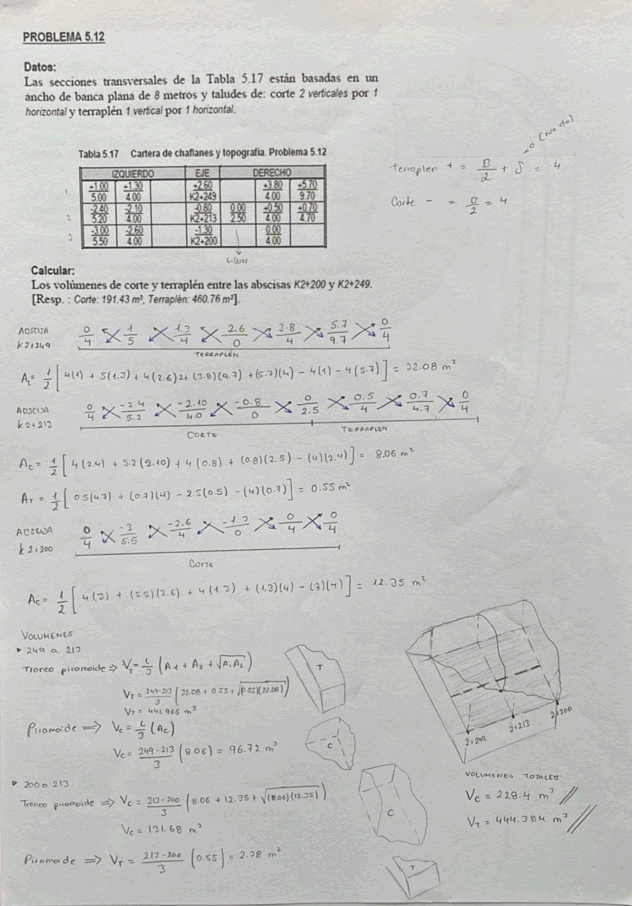 PROBLEMA 5.12
Datos:
Las secciones transversales de la Tabla 5.17 están basadas en un
ancho de banca plana de 8 metros y taludes de: corte 2 verticales por 1
horizontal y terraplén 1 vertical por 1 horizontal.
terraplen + = B/2 + S = 4
→0 (No da)
Corte - = B/2 = 4
Tabla 5.17 Cartera de chaflanes y topografía. Problema 5.12
IZQUIERDO EJE DERECHO
1 +1.00/5.00 +1.30/4.00 +2.60/K2+249 +3.80/4.00 +5.70/9.70
2 -2.40/5.20 -2.10/4.00 -0.80/K2+213 0.00/2.50 +0.50/4.00 +0.70/4.70
3 -3.00/5.50 -2.60/4.00 -1.30/K2+200 0.00/4.00
L. Ceros
Calcular:
Los volúmenes de corte y terraplén entre las abscisas K2+200 y K2+249.
[Resp. : Corte: 191.43 m³, Terraplén: 460.76 m³].
K2+249
0/4 1/5 1.3/4 2.6/0 3.8/4 5.7/9.7 0/4
TERRAPLÉN
= 1/2 [4(1) + 5(1.3) + 4(2.6)2 + (3.8)(9.7) + (5.7)(4) - 4(1) - 4(5.7)] = 32.08 m²
K2+213
0/4 -2.4/5.2 -2.10/4.0 -0.8/0 0/2.5 0.5/4 0.7/4.7 0/4
CORTE TERRAPLEN
Ac = 1/2 [4(2.4) + 5.2(2.10) + 4(0.8) + (0.8)(2.5) - (4)(2.4)] = 8.06 m²
AT = 1/2 [0.5(4.7) + (0.7)(4) - 2.5(0.5) - (4)(0.7)] = 0.55 m²
K2+200
0/4 -3/5.5 -2.6/4 -1.3/0 0/4 0/4
Corte
Ac = 1/2 [4(3) + (5.5)(2.6) + 4(1.3) + (1.3)(4) - (3)(4)] = 12.35 m²
VOLUMENES
249 a 213
Tronco piramoide ⇒ VT = L/3 (A1 + A2 + √A1A2)
VT = 249-213/3 (32.08 + 0.55 + √(0.55)(32.08))
VT = 441.965 m³
T
Piramoide ⇒ Vc = L/3 (Ac)
Vc = 249-213/3 (8.06) = 96.72 m³
C
2+249 2+213 2+200
200 a 213
Tronco piramoide ⇒ Vc = 213-200/3 (8.06 + 12.35 + √(8.06)(12.35))
Vc = 131.68 m³
C
Piramoide ⇒ VT = 213-200/3 (0.55) = 2.38 m³
T
VOLUMENES TOTALES
Vc = 228.4 m³
VT = 444.384 m³